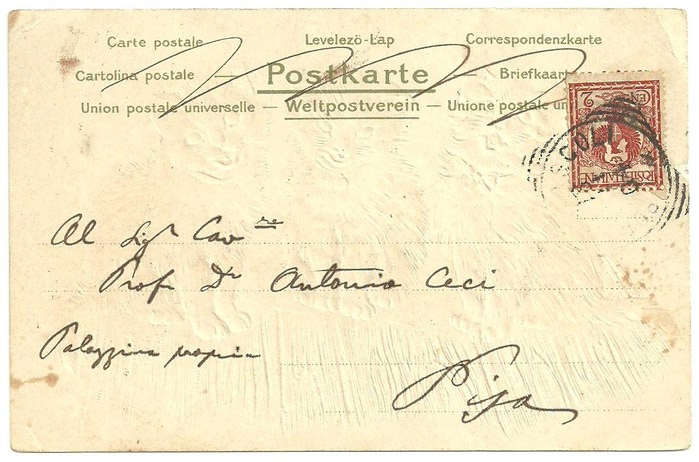 Carte postale Levelező-Lap Correspondenzkarte
Cartolina postale — Postkarte — Briefkaart
Union postale universelle — Weltpostverein — Unione postale un
2
POSTE ITALIANE
Al Sigr Cavre
Prof. Dr Antonio Ceci
Palazzina propria
Pisa